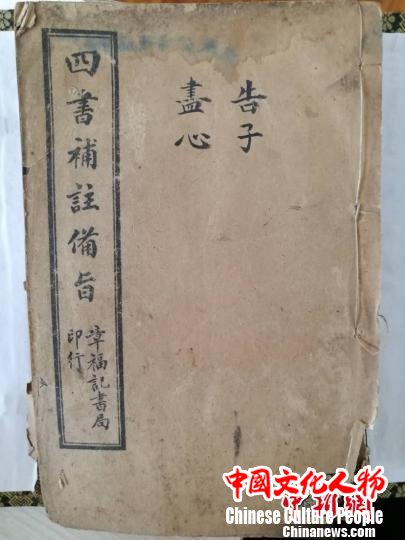 告子
盡心
四書補註備旨
章福記書局
印行
中國文化人物
中新網
Chinese Culture People
Chinanews.com